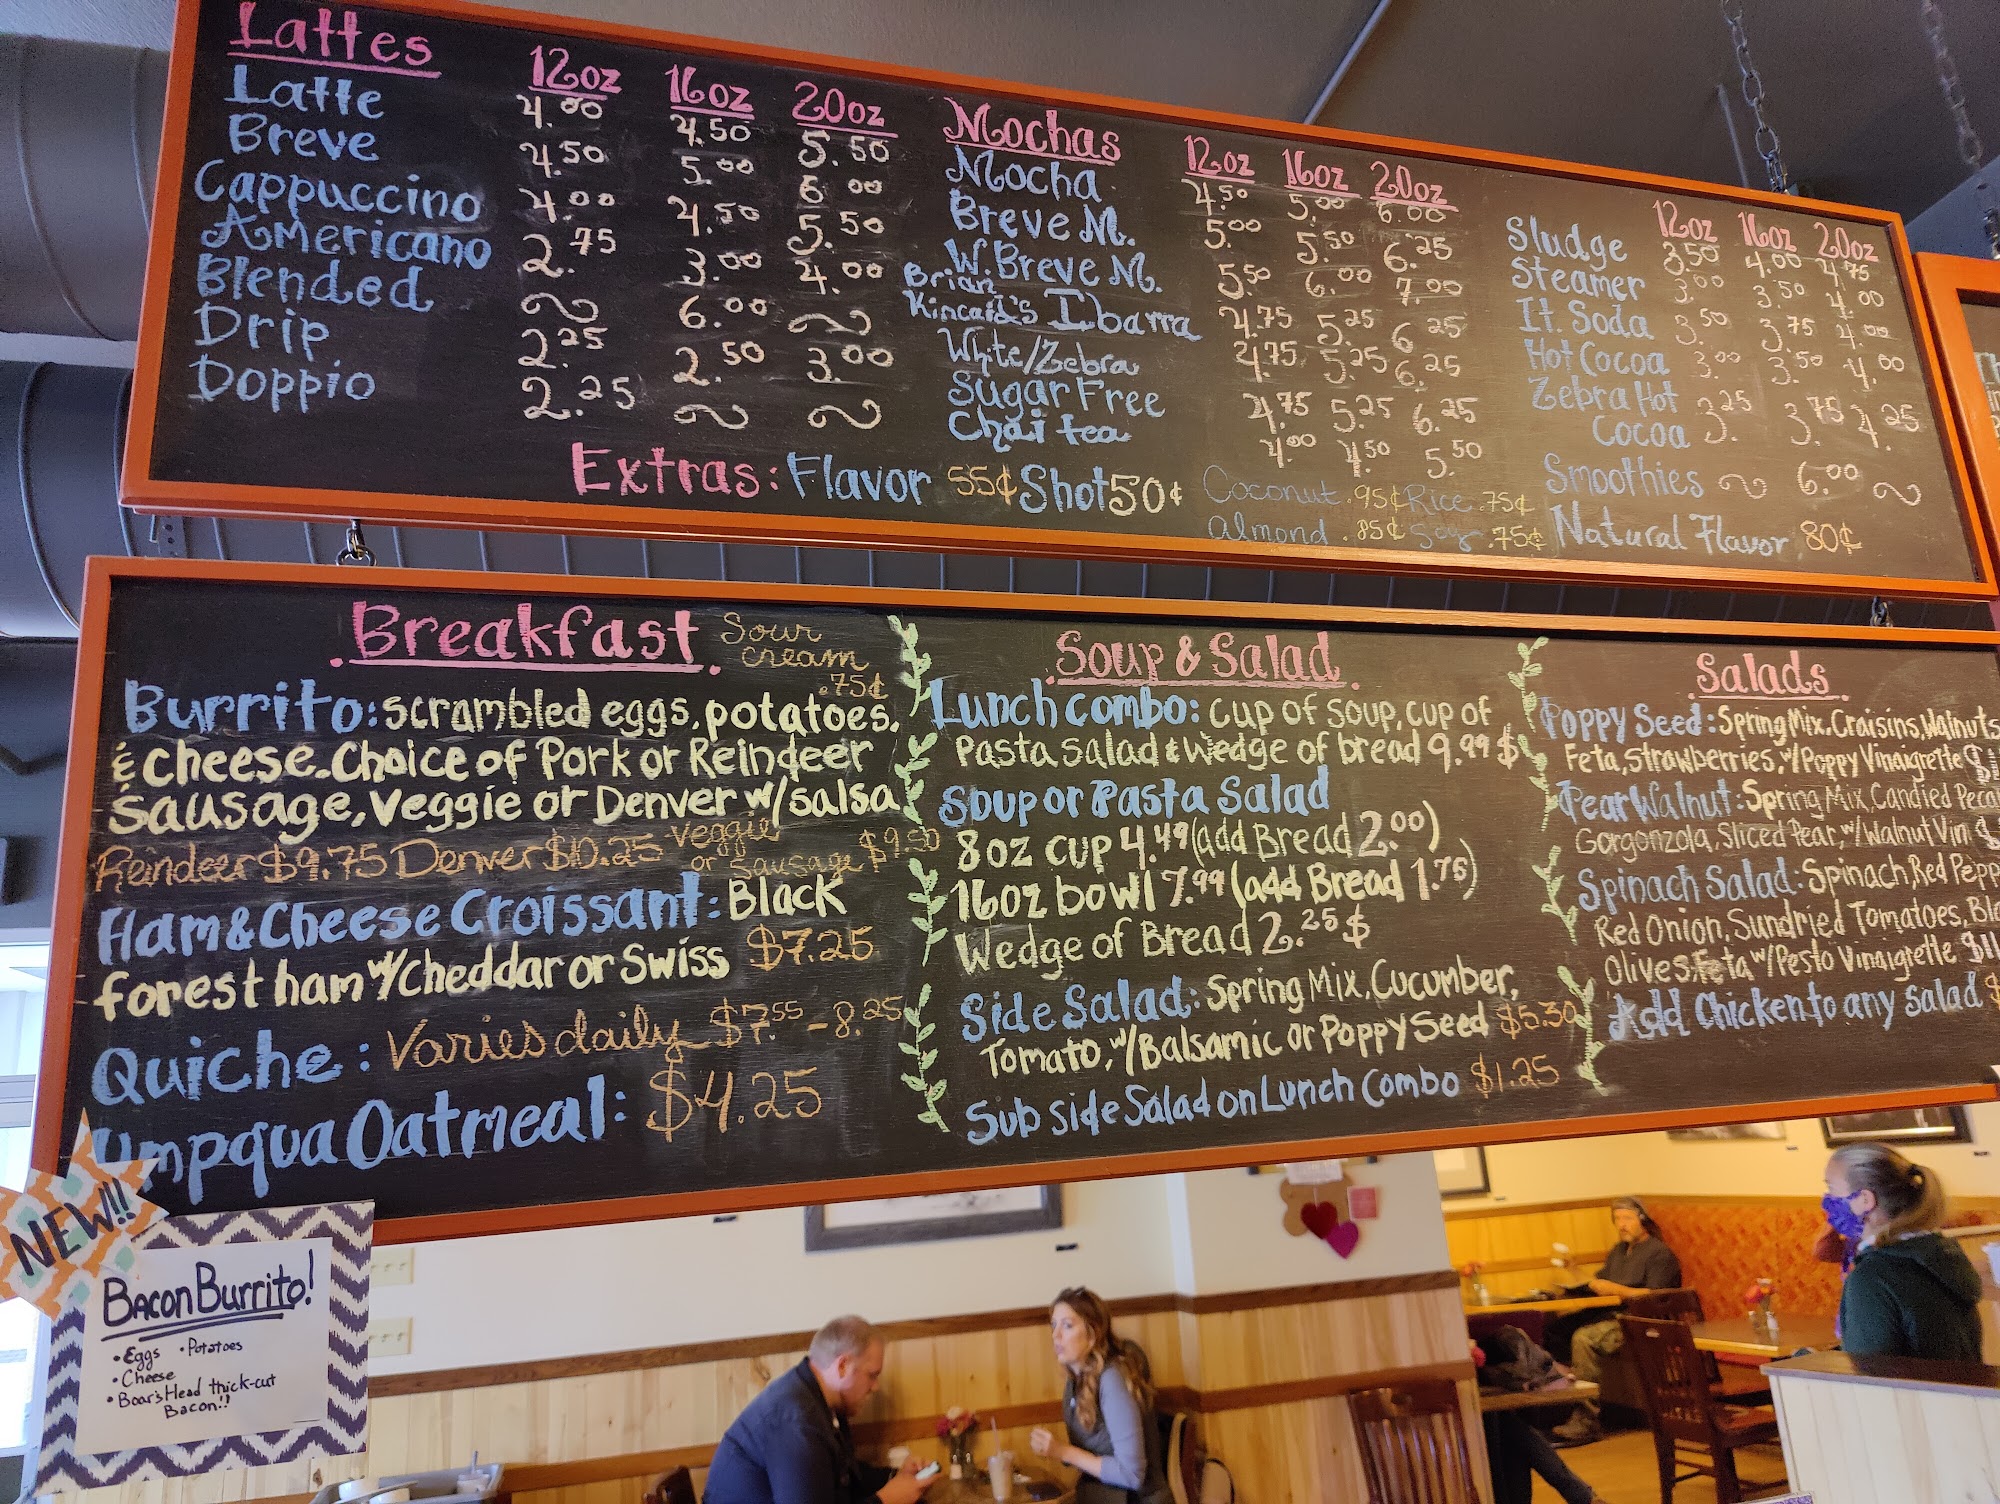 Lattes 12oz 16oz 20oz
Latte 4.00 4.50 5.50
Breve 4.50 5.00 6.00
Cappuccino 4.00 4.50 5.50
Americano 2.75 3.00 4.00
Blended ~ 6.00 ~
Drip 2.25 2.50 3.00
Doppio 2.25 ~ ~
Mochas 12oz 16oz 20oz
Mocha 4.50 5.00 6.00
Breve M. 5.00 5.50 6.25
W. Breve M. 5.50 6.00 7.00
Brian
Kincaid's Ibarra 4.75 5.25 6.25
White/Zebra 4.75 5.25 6.25
Sugar Free 4.75 5.25 6.25
Chai tea 4.00 4.50 5.50
12oz 16oz 20oz
Sludge 3.50 4.00 4.75
Steamer 3.00 3.50 4.00
It. Soda 3.50 3.75 4.00
Hot Cocoa 3.00 3.50 4.00
Zebra Hot
Cocoa 3.25 3.75 4.25
Smoothies ~ 6.00 ~
Natural Flavor 80¢
Extras: Flavor 55¢ Shot 50¢
Coconut .95¢ Rice .75¢
Almond .85¢ Soy .75¢
Breakfast
Sour
cream
.75¢
Burrito: scrambled eggs, potatoes,
& cheese. Choice of Pork or Reindeer
Sausage, Veggie or Denver w/salsa
Reindeer $9.75 Denver $10.25 Veggie
or Sausage $9.50
Ham & Cheese Croissant: Black
forest ham w/cheddar or Swiss $7.25
Quiche: Varies daily $7.55 - 8.25
Umpqua Oatmeal: $4.25
Soup & Salad
Lunch combo: cup of soup, cup of
Pasta Salad & Wedge of bread 9.99 $
Soup or Pasta Salad
8oz cup 4.49 (add Bread 2.00)
16oz bowl 7.99 (add Bread 1.75)
Wedge of Bread 2.25 $
Side Salad: Spring Mix, Cucumber,
Tomato, w/Balsamic or Poppy Seed $5.30
Sub side Salad on Lunch Combo $1.25
Salads
Poppy Seed: Spring Mix, Craisins, Walnuts
Feta, Strawberries, w/Poppy Vinaigrette $
Pear Walnut: Spring Mix, Candied
Gorgonzola, Sliced Pear, w/Walnut Vin $
Spinach Salad: Spinach, Red
Red Onion, Sundried Tomatoes,
Olives, Feta w/Pesto Vinaigrette
Add Chicken to any Salad
NEW!!!
Bacon Burrito!
• Eggs • Potatoes
• Cheese
• Boar's Head thick-cut
Bacon!!